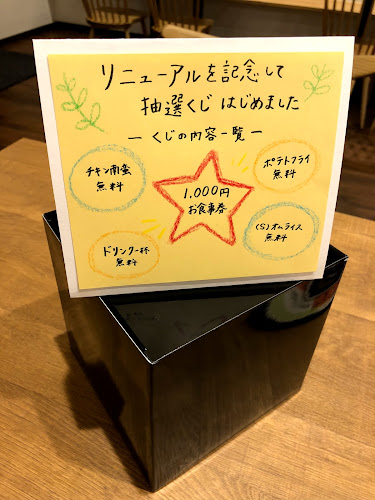 リニューアルを記念して
抽選くじ はじめました
ー くじの内容一覧 ー
チキン南蛮
無料
ポテトフライ
無料
1.000円
お食事券
ドリンク一杯
無料
(S)オムライス
無料